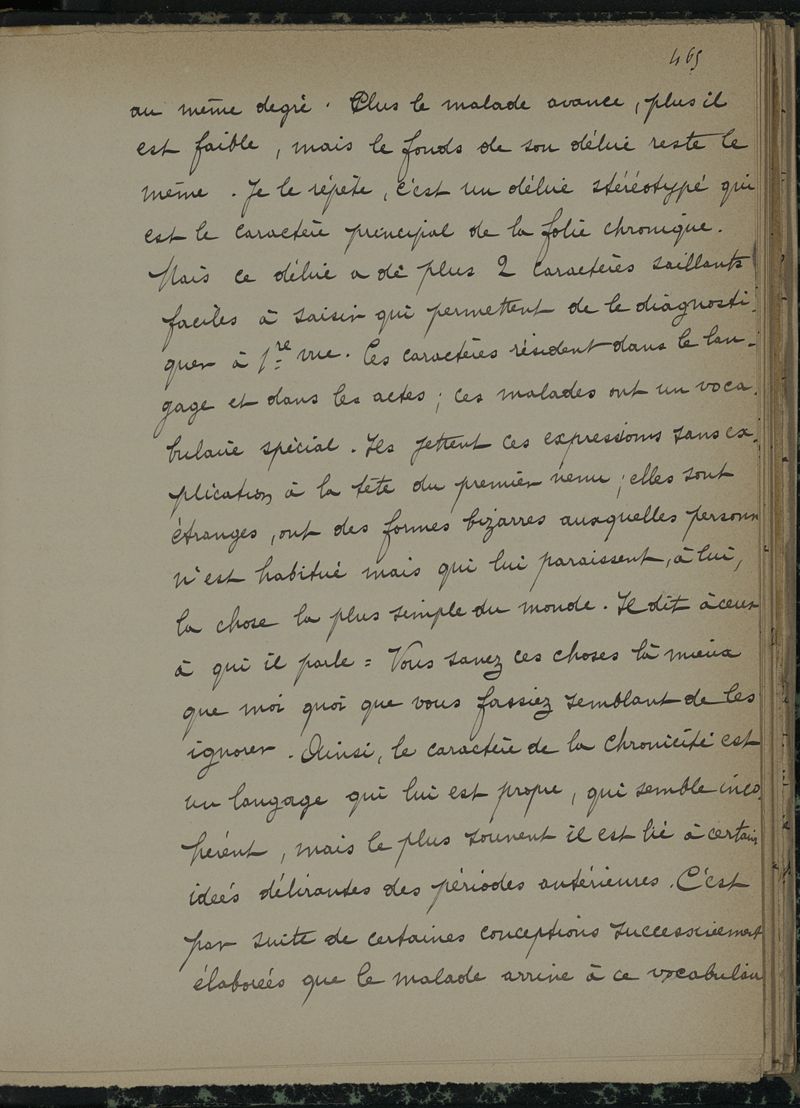 465
au même degré. Plus le malade avance, plus il
est faible, mais le fonds de son délire reste le
même. Je le répète, c'est un délire stéréotypé qui
est le caractère principal de la folie chronique.
Mais ce délire a de plus 2 caractères saillants
faciles à saisir qui permettent de le diagnosti-
quer à 1re vue. Ces caractères résident dans le lan-
gage et dans les actes ; ces malades ont un voca-
bulaire spécial. Ils jettent ces expressions sans ex-
plication à la tête du premier venu ; elles sont
étranges, ont des formes bizarres auxquelles personn
n'est habitué mais qui lui paraissent, à lui,
la chose la plus simple du monde. Il dit à ceux
à qui il parle = Vous savez ces choses là mieux
que moi quoi que vous fassiez semblant de les
ignorer. Ainsi, le caractère de la chronicité est
un langage qui lui est propre, qui semble inco-
hérent, mais le plus souvent il est lié à certain
ideés délirantes des périodes antérieures. C'est
par suite de certaines conceptions successivement
élaboreés que le malade arrive à ce vocabulair